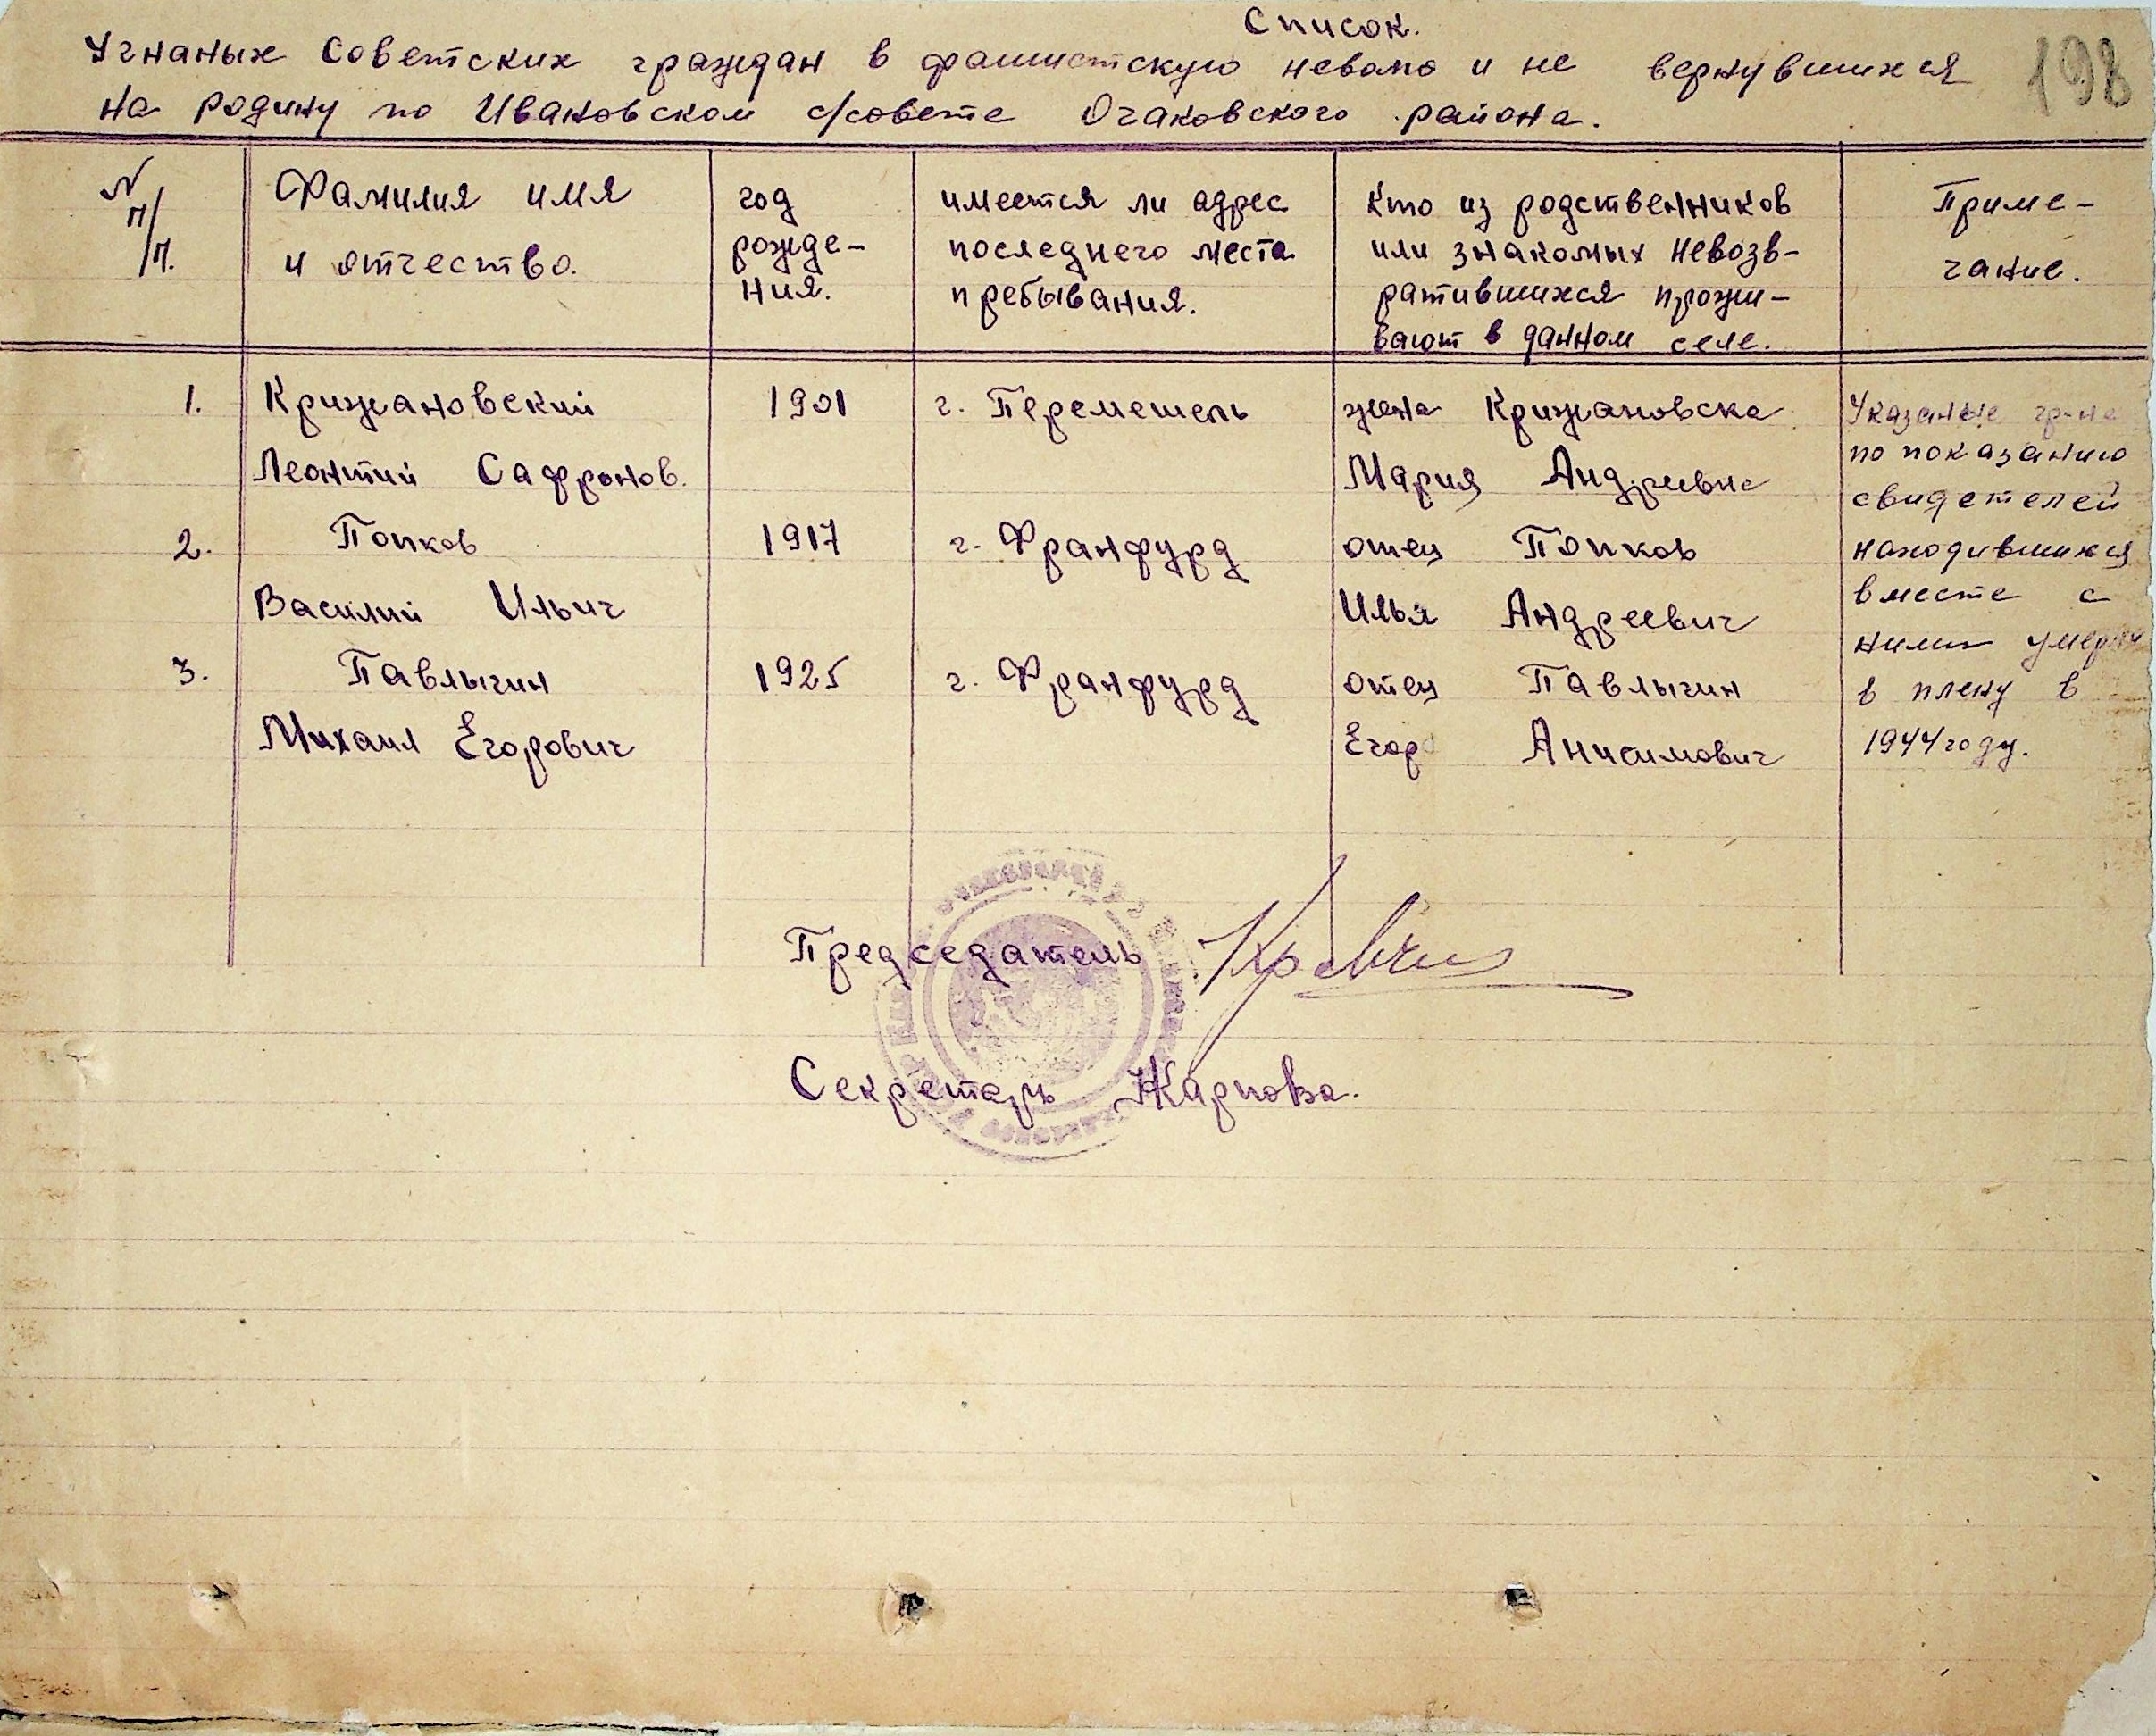 Список.
Угнаных Советских граждан в фашистскую неволю и не вернувшихся
на родину по Ивановском с/совете Очаковского района.
198
N п/п. Фамилия имя и отчество. год рожде- ния. имеется ли адрес последнего места пребывания. Кто из родственников или знакомых невозв- ратившихся прожи- вают в данном селе. Приме- чание.
1. Крижановский 1901 г. Перемешель жена Крижановска
Леонтий Сафронов. Мария Андреевна
2. Попков 1917 г. Франфурд отец Попков
Василий Ильич Илья Андреевич
3. Павлыгин 1925 г. Франфурд отец Павлыгин
Михаил Егорович Егор Анисимович
Указаные гр-не
по показанию
свидетелей
находившихся
вместе с
ними умерли
в плену в
1944 году.
Председатель
Секретарь Жаркова.